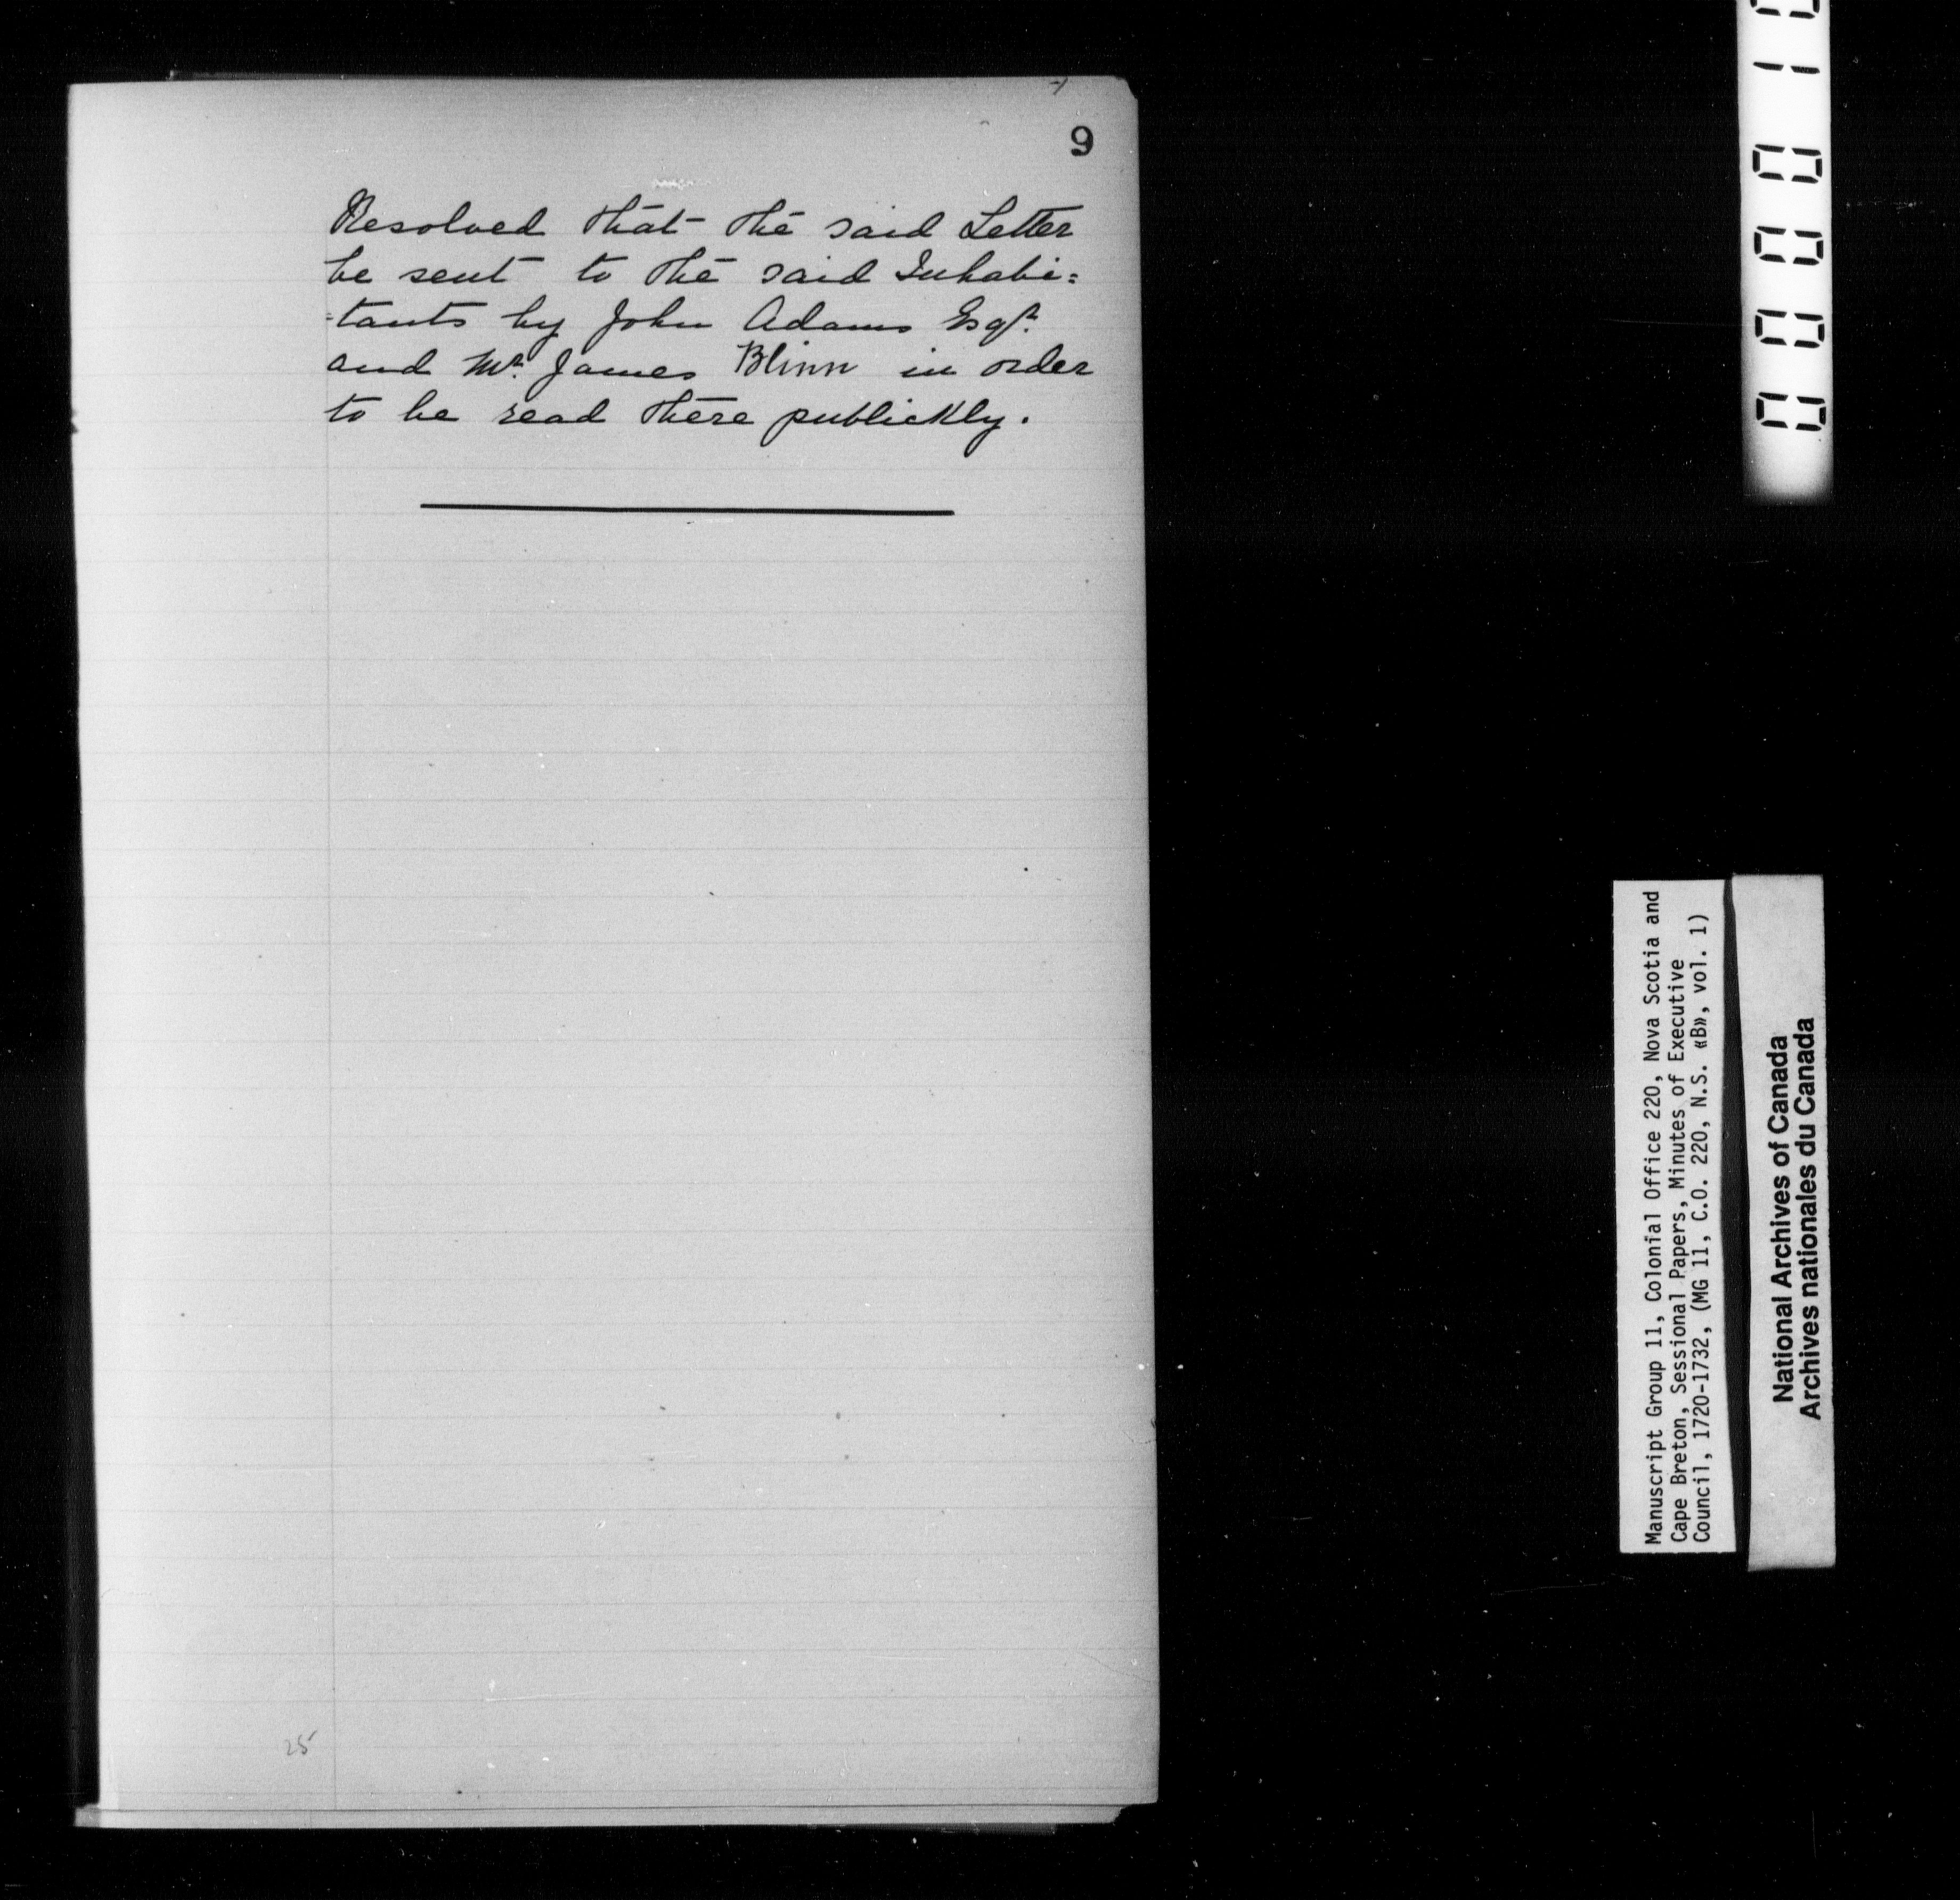 9
Resolved that the said Letter
be sent to the said Inhabi=
=tants by John Adams Esqr.
and Mr. James Blinn in order
to be read there publickly.
25
0 0 0 0 1
Manuscript Group 11, Colonial Office 220, Nova Scotia and
Cape Breton, Sessional Papers, Minutes of Executive
Council, 1720-1732, (MG 11, C.O. 220, N.S. «B», vol. 1)
National Archives of Canada
Archives nationales du Canada